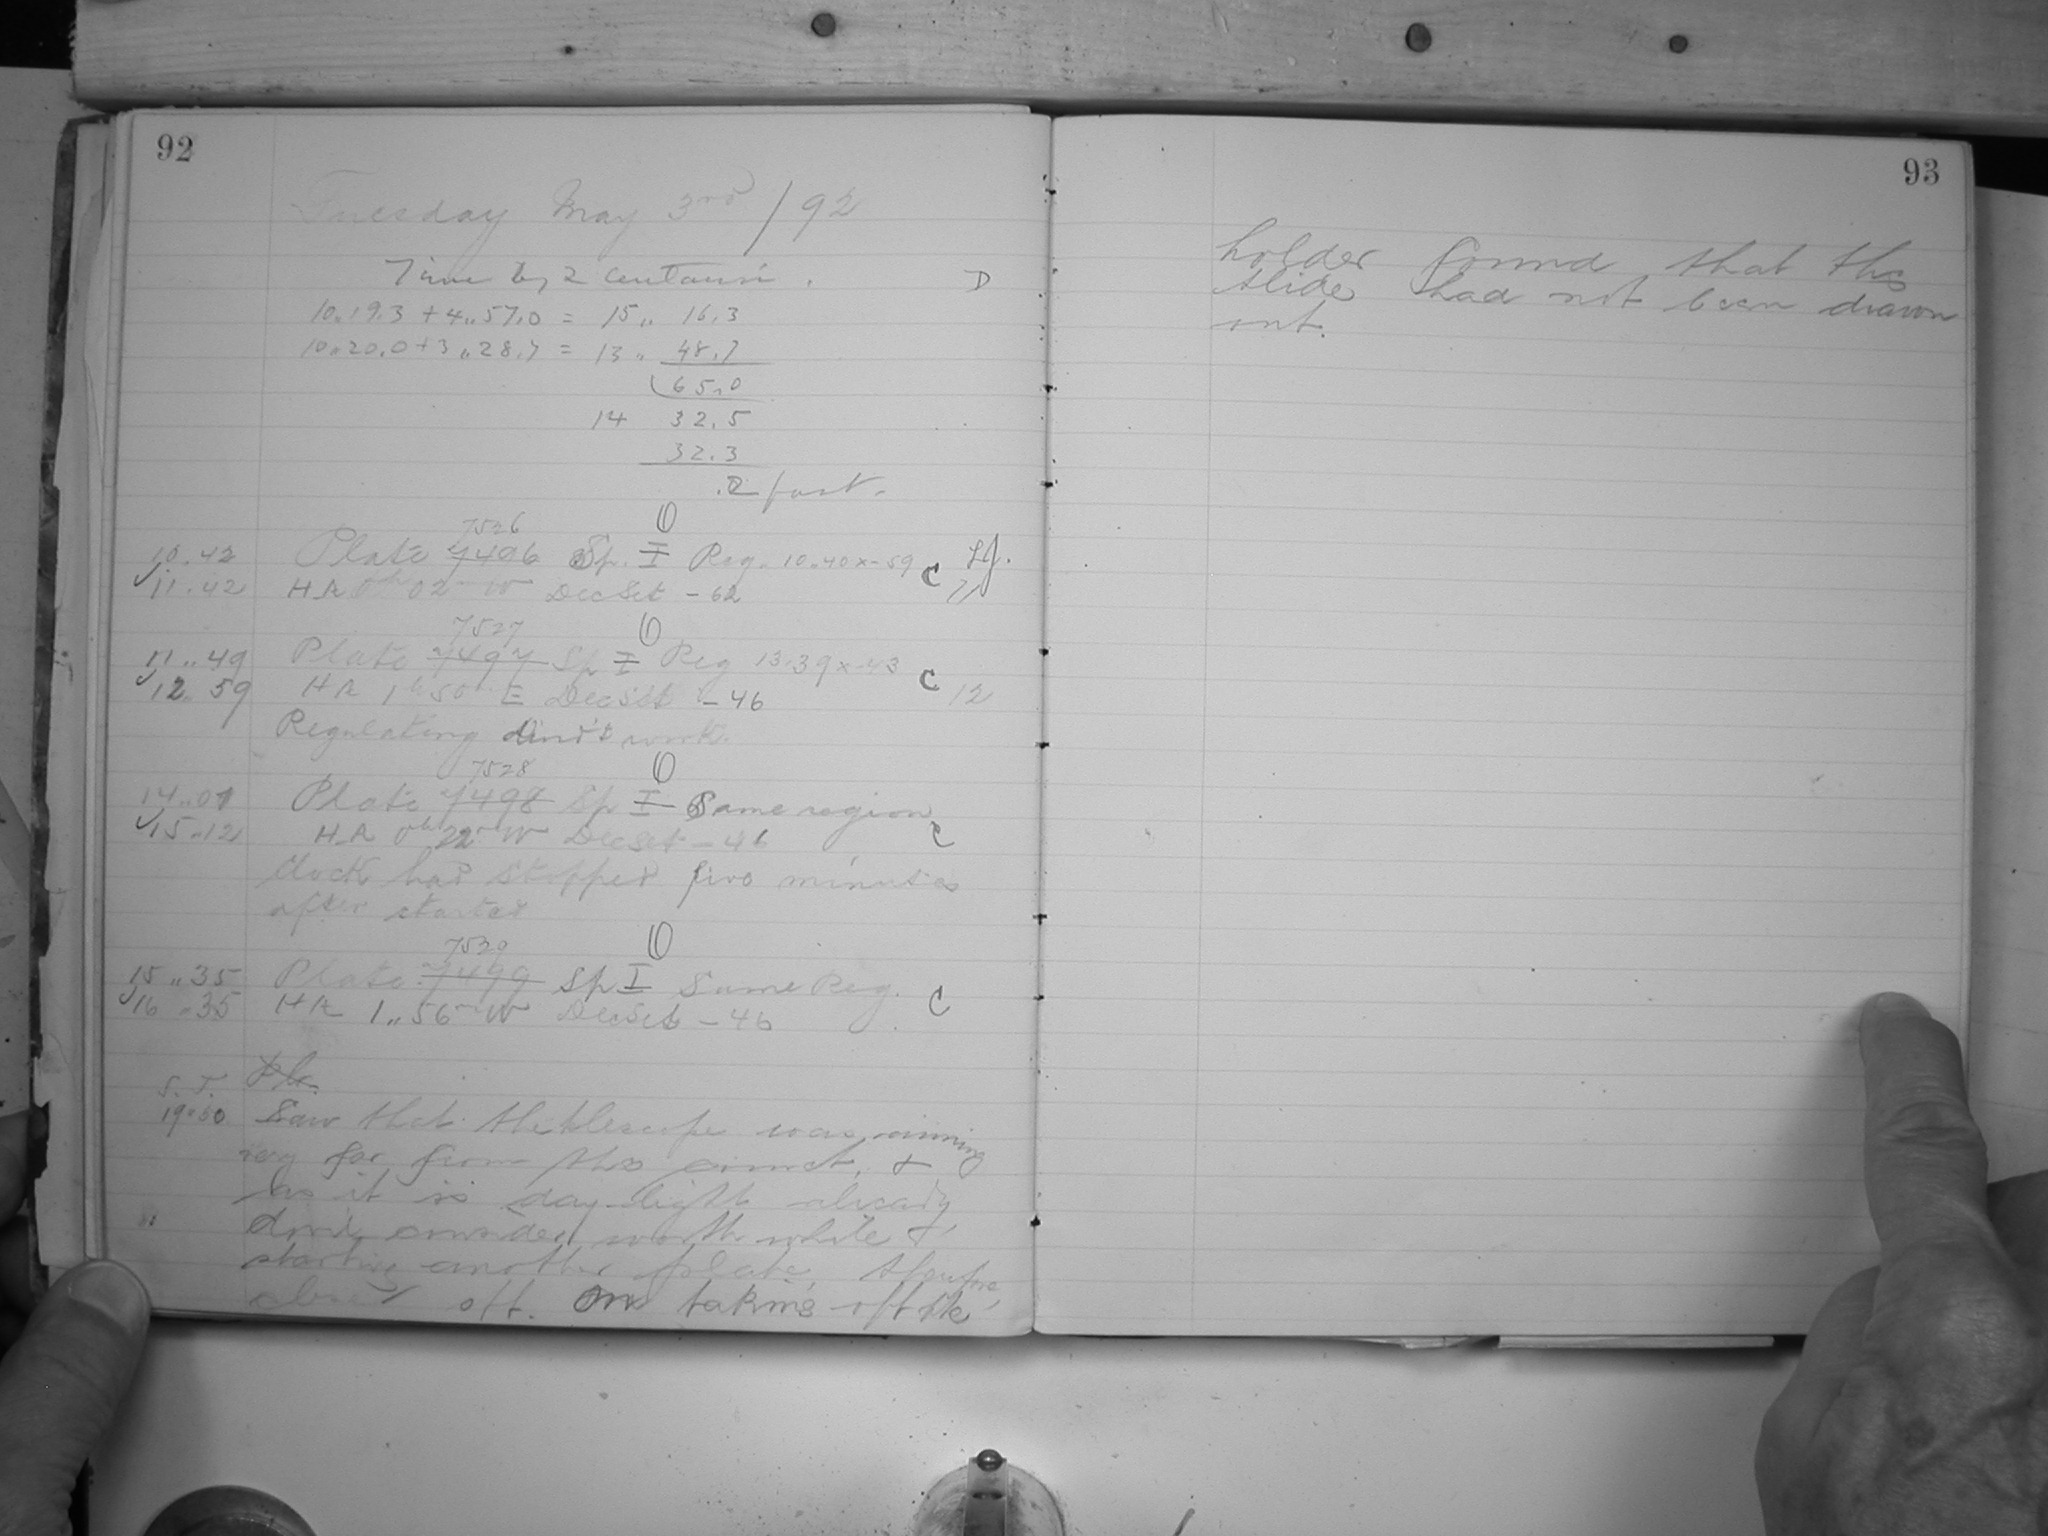 92
Tuesday May 3rd / 92
Time by 2 Centauri. D
10,,19.3 + 4,,57.0 = 15,, 16.3
10,,20.0 + 3,,28.7 = 13,, 48.7
65.0
14 32.5
32.3
.2 fast.
7526
10.42 Plate 7496 Sp. I Reg. 10.40 x -59 C
11.42 HA 0h 02m W Dec Set -62
7527
11,,49 Plate 7497 Sp I Reg 13.39 x -43 C
12.59 HA 1h 50m E Dec Set -46 12
Regulating didn't work.
7528
14,,01 Plate 7498 Sp I Same region
15,,12 H.A 0h 22m W Dec Set -46 C
Clock had stopped five minutes
after started
7529
15,,35 Plate 7499 Sp I Same Reg.
16,,35 HA 1,,56m W Dec Set -46 C
S. T.
19,,50 Saw that the telescope was running
far from the
as it is day light already,
consider worth while
starting another plate, therefore
closed off. On taking off the
93
holder found that the
slide had not been drawn
out.